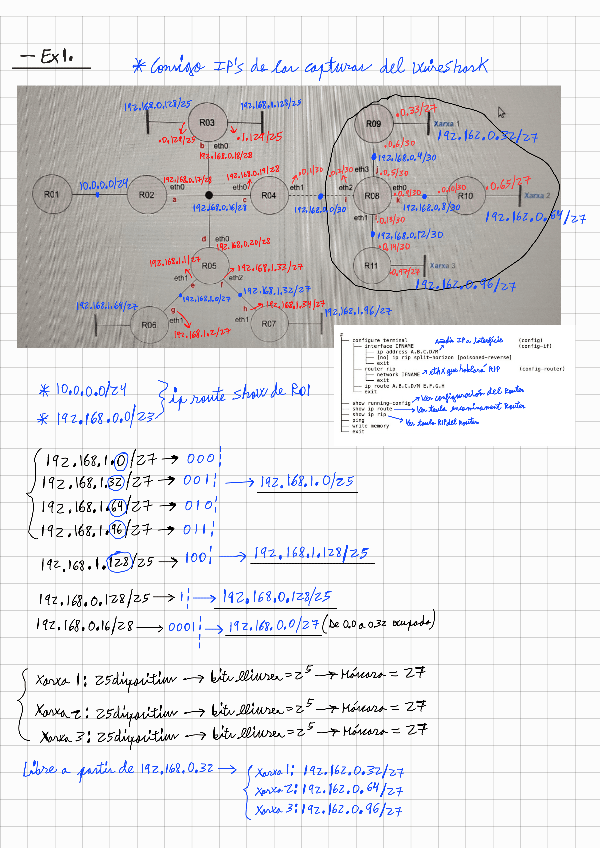 — Ex1.
* Consigo IP's de las capturas del Wireshark
192.168.0.128/25
192.168.1.128/25
R03
.0.129/25
.1.129/25
b
eth0
192.168.0.18/28
R09
.0.33/27
Xarxa 1
192.162.0.32/27
.0.6/30
192.168.0.4/30
.0.5/30
eth3
R01
10.0.0.0/24
R02
192.168.0.17/28
eth0
a
192.168.0.16/28
192.168.0.19/28
eth0
c
R04
eth1
192.168.0.0/30
eth2
i
R08
k
192.168.0.8/30
R10
.0.65/27
Xarxa 2
192.162.0.64/27
eth1
.0.13/30
192.168.0.12/30
.0.14/30
R11
.0.97/27
Xarxa 3
192.162.0.96/27
d
eth0
192.168.0.20/28
R05
192.168.1.1/27
eth1
e
192.168.1.33/27
f
eth2
192.168.1.0/27
192.168.1.32/27
192.168.1.64/27
R06
g
eth1
192.168.1.2/27
h
eth1
192.168.1.34/27
R07
192.168.1.96/27
configure terminal (config)
interface IFNAME añadir IP a Interfície (config-if)
ip address A.B.C.D/M
[no] ip rip split-horizon [poisoned-reverse]
exit
router rip (config-router)
network IFNAME ethX que hablará RIP
exit
ip route A.B.C.D/M E.F.G.H
exit
show running-config Ver configuración del Router
show ip route Ver taula encaminament Router
show ip rip Ver taula RIP del Router
ping
write memory
exit
* 10.0.0.0/24
* 192.168.0.0/23
ip route show de R01
192.168.1.0/27 → 000
192.168.1.32/27 → 001 → 192.168.1.0/25
192.168.1.64/27 → 010
192.168.1.96/27 → 011
192.168.1.128/25 → 100 → 192.168.1.128/25
192.168.0.128/25 → 1 → 192.168.0.128/25
192.168.0.16/28 → 0001 → 192.168.0.0/27 (De 0.0 a 0.32 ocupado)
Xarxa 1: 25 dispositius → bits lliures = 2^5 → Máscara = 27
Xarxa 2: 25 dispositius → bits lliures = 2^5 → Máscara = 27
Xarxa 3: 25 dispositius → bits lliures = 2^5 → Máscara = 27
Libre a partir de 192.168.0.32 →
Xarxa 1: 192.162.0.32/27
Xarxa 2: 192.162.0.64/27
Xarxa 3: 192.162.0.96/27